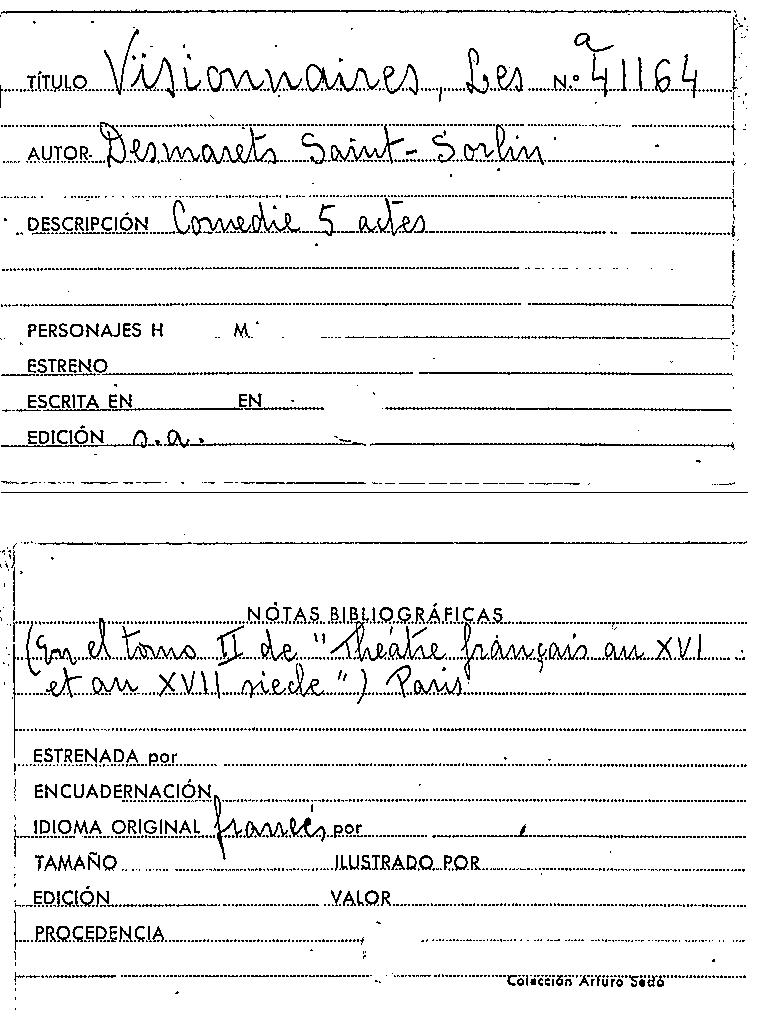 a
TÍTULO Visionnaires, Les N.º 41164
AUTOR Desmarets Saint-Sorlin
DESCRIPCIÓN Comedie 5 actes
PERSONAJES H M.
ESTRENO
ESCRITA EN EN
EDICIÓN s.a.
NOTAS BIBLIOGRÁFICAS
(En el tomo II de "Theâtre français au XVI
et au XVII siecle") Paris
ESTRENADA por
ENCUADERNACIÓN
IDIOMA ORIGINAL francés por
TAMAÑO ILUSTRADO POR
EDICIÓN VALOR
PROCEDENCIA
Colección Arturo Sedó